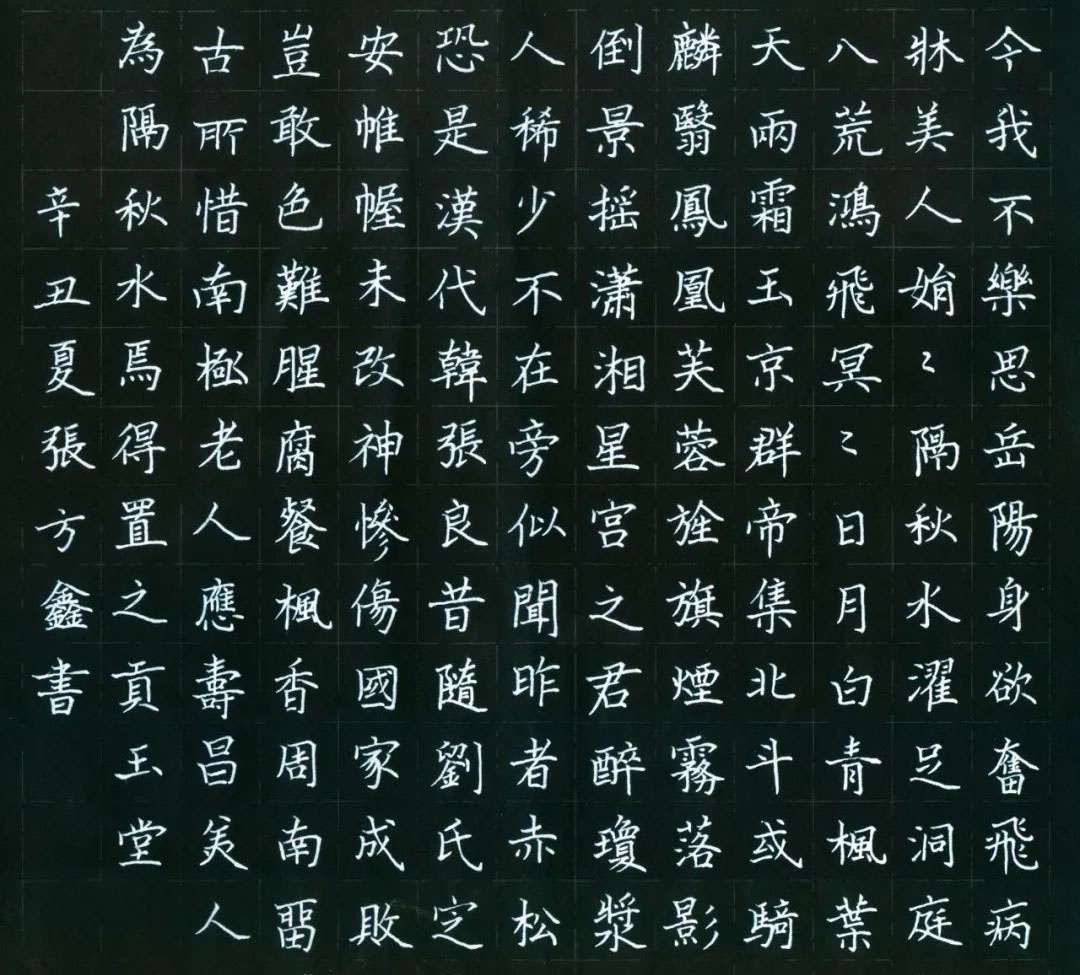 今我不樂思岳陽身欲奮飛病
牀美人娟〻隔秋水濯足洞庭
八荒鴻飛冥〻日月白青楓葉
天雨霜玉京群帝集北斗或騎
麟翳鳳凰芙蓉旌旗煙霧落影
倒景摇瀟湘星宫之君醉瓊漿
人稀少不在旁似聞昨者赤松
恐是漢代韓張良昔隨劉氏定
安帷幄未改神慘傷國家成敗
豈敢色難腥腐餐楓香周南留
古所惜南極老人應壽昌美人
為隔秋水焉得置之貢玉堂
辛丑夏張方鑫書